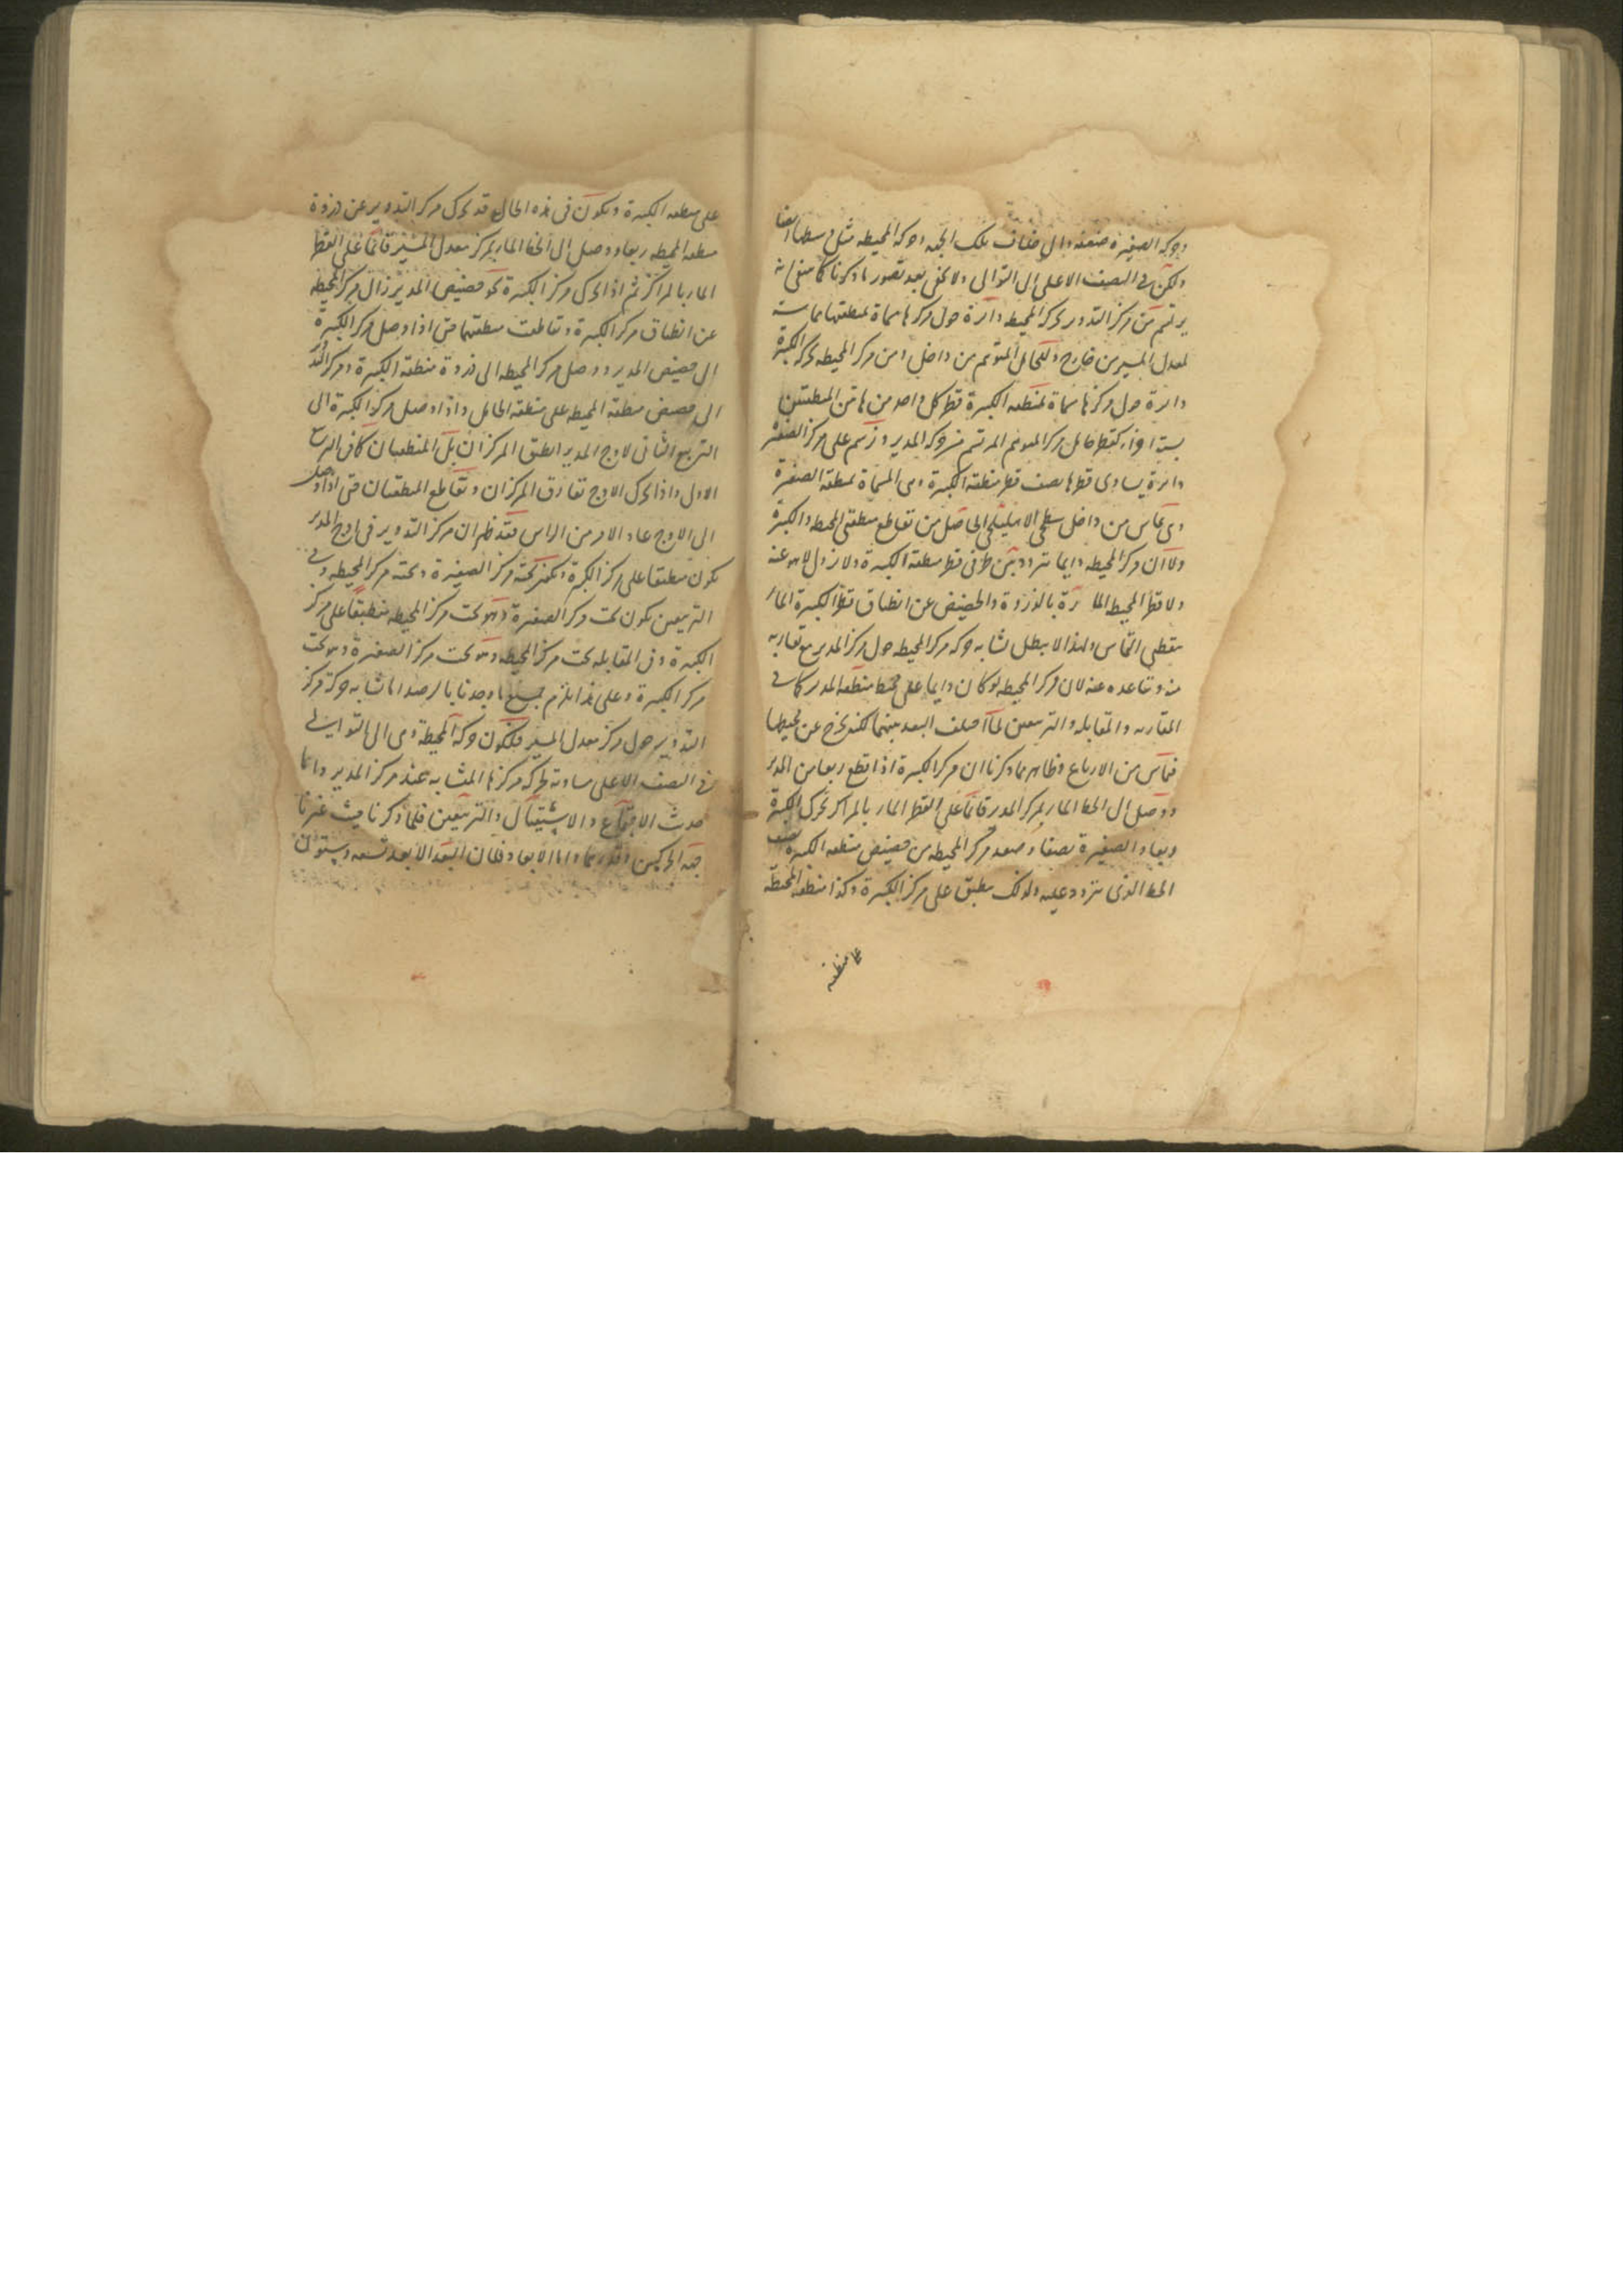 وحركة الصغيرة ضعفه والى خلاف تلك الجهة وحركة المحيطة مثل وسطها ايضا
ولكن في النصف الاعلى الى التوالي ولا يخفى بعد تصور ما ذكرنا كما ينبغي انه
يرتسم من مركز التدوير بحركة المحيطة دائرة حول مركزها مسماة بمنطقتها مماسة
لمعدل المسير من خارج وللحامل المتوهم من داخل ومن مركز المحيطة بحركة الكبيرة
دائرة حول مركزها مسماة بمنطقة الكبيرة قطر كل واحد من هاتين المنطقتين
ستة اجزاء كقطر حامل مركز المتوهم المرتسم من حركة المدير وترسم على مركز الصغيرة
دائرة يساوي قطرها نصف قطر منطقة الكبيرة وهي المسماة بمنطقة الصغيرة
وهي تماس من داخل سطحي الاهليلجي الحاصل من تقاطع منطقتي المحيطة والكبيرة
ولان مركز المحيطة دايما يتردد بين طرفي قطر منطقة الكبيرة ولا يزول لا هو عنه
ولا قطر المحيط المارة بالذروة والحضيض عن انطباق قطر الكبيرة المار
بنقطتي التماس ولهذا لا يبطل تشابه حركة مركز المحيطة حول مركز المدير مع تقاربه
منه وتباعده عنه لان مركز المحيطة لو كان دايما على محيط منطقة المدير كما في
المقارنة والمقابلة والتربيعين لما اختلف البعد بينهما لكنه يخرج عن محيطها
فيما بين الارباع وظاهر مما ذكرنا ان مركز الكبيرة اذا قطع ربعا من المدير
ووصل الى الخط المار بمركز المدير قائما على القطر المار بالمراكز تحرك الكبيرة
ربعا والصغيرة نصفا وصعد مركز المحيطة من حضيض منطقة الكبيرة نصف
الخط الذي يتردد عليه ولذلك ينطبق على مركز الكبيرة وكذا منطقة المحيطة
على منطقة
على منطقة الكبيرة ويكون في هذه الحال قد تحرك مركز التدوير عن ذروة
منطقة المحيطة ربعا ووصل الى الخط المار بمركز معدل المسير قائما على القطر
المار بالمراكز ثم اذا تحرك مركز الكبيرة نحو حضيض المدير زال مركز المحيطة
عن انطباق مركز الكبيرة وتقاطعت منطقتهما حتى اذا وصل مركز الكبيرة
الى حضيض المدير ووصل مركز المحيطة الى ذروة منطقة الكبيرة ومركز التدوير
الى حضيض منطقة المحيط على منطقة الحامل واذا وصل مركز الكبيرة الى
التربيع الثاني لاوج المدير انطبق المركزان بل المنطقتان كما في التربيع
الاول واذا تحرك الى الاوج تفارق المركزان وتقاطع المنطقتان حتى اذا وصل
الى الاوج عاد الامر من الراس فقد ظهر ان مركز التدوير في اوج المدير
يكون منطبقا على مركز الكبيرة ويكون تحته مركز الصغيرة وتحته مركز المحيطة وفي
التربيعين يكون تحت مركز الصغيرة وهو تحت مركز المحيطة منطبقا على مركز
الكبيرة وفي المقابلة تحت مركز المحيطة وهو تحت مركز الصغيرة وهو تحت
مركز الكبيرة وعلى هذا يلزم جميع ما وجدنا بالرصد اما تشابه حركة مركز
التدوير حول مركز معدل المسير فلكون حركة المحيطة وهي الى التوالي
في النصف الاعلى مساوية لحركة مركزها المتشابهة عند مركز المدير واما
حدوث الاجتماع والاستقبال والتربيعين فلما ذكرنا حيث
جهة الحركتين وقدرهما واما الابعاد فلان البعد الابعد تسعة وستون